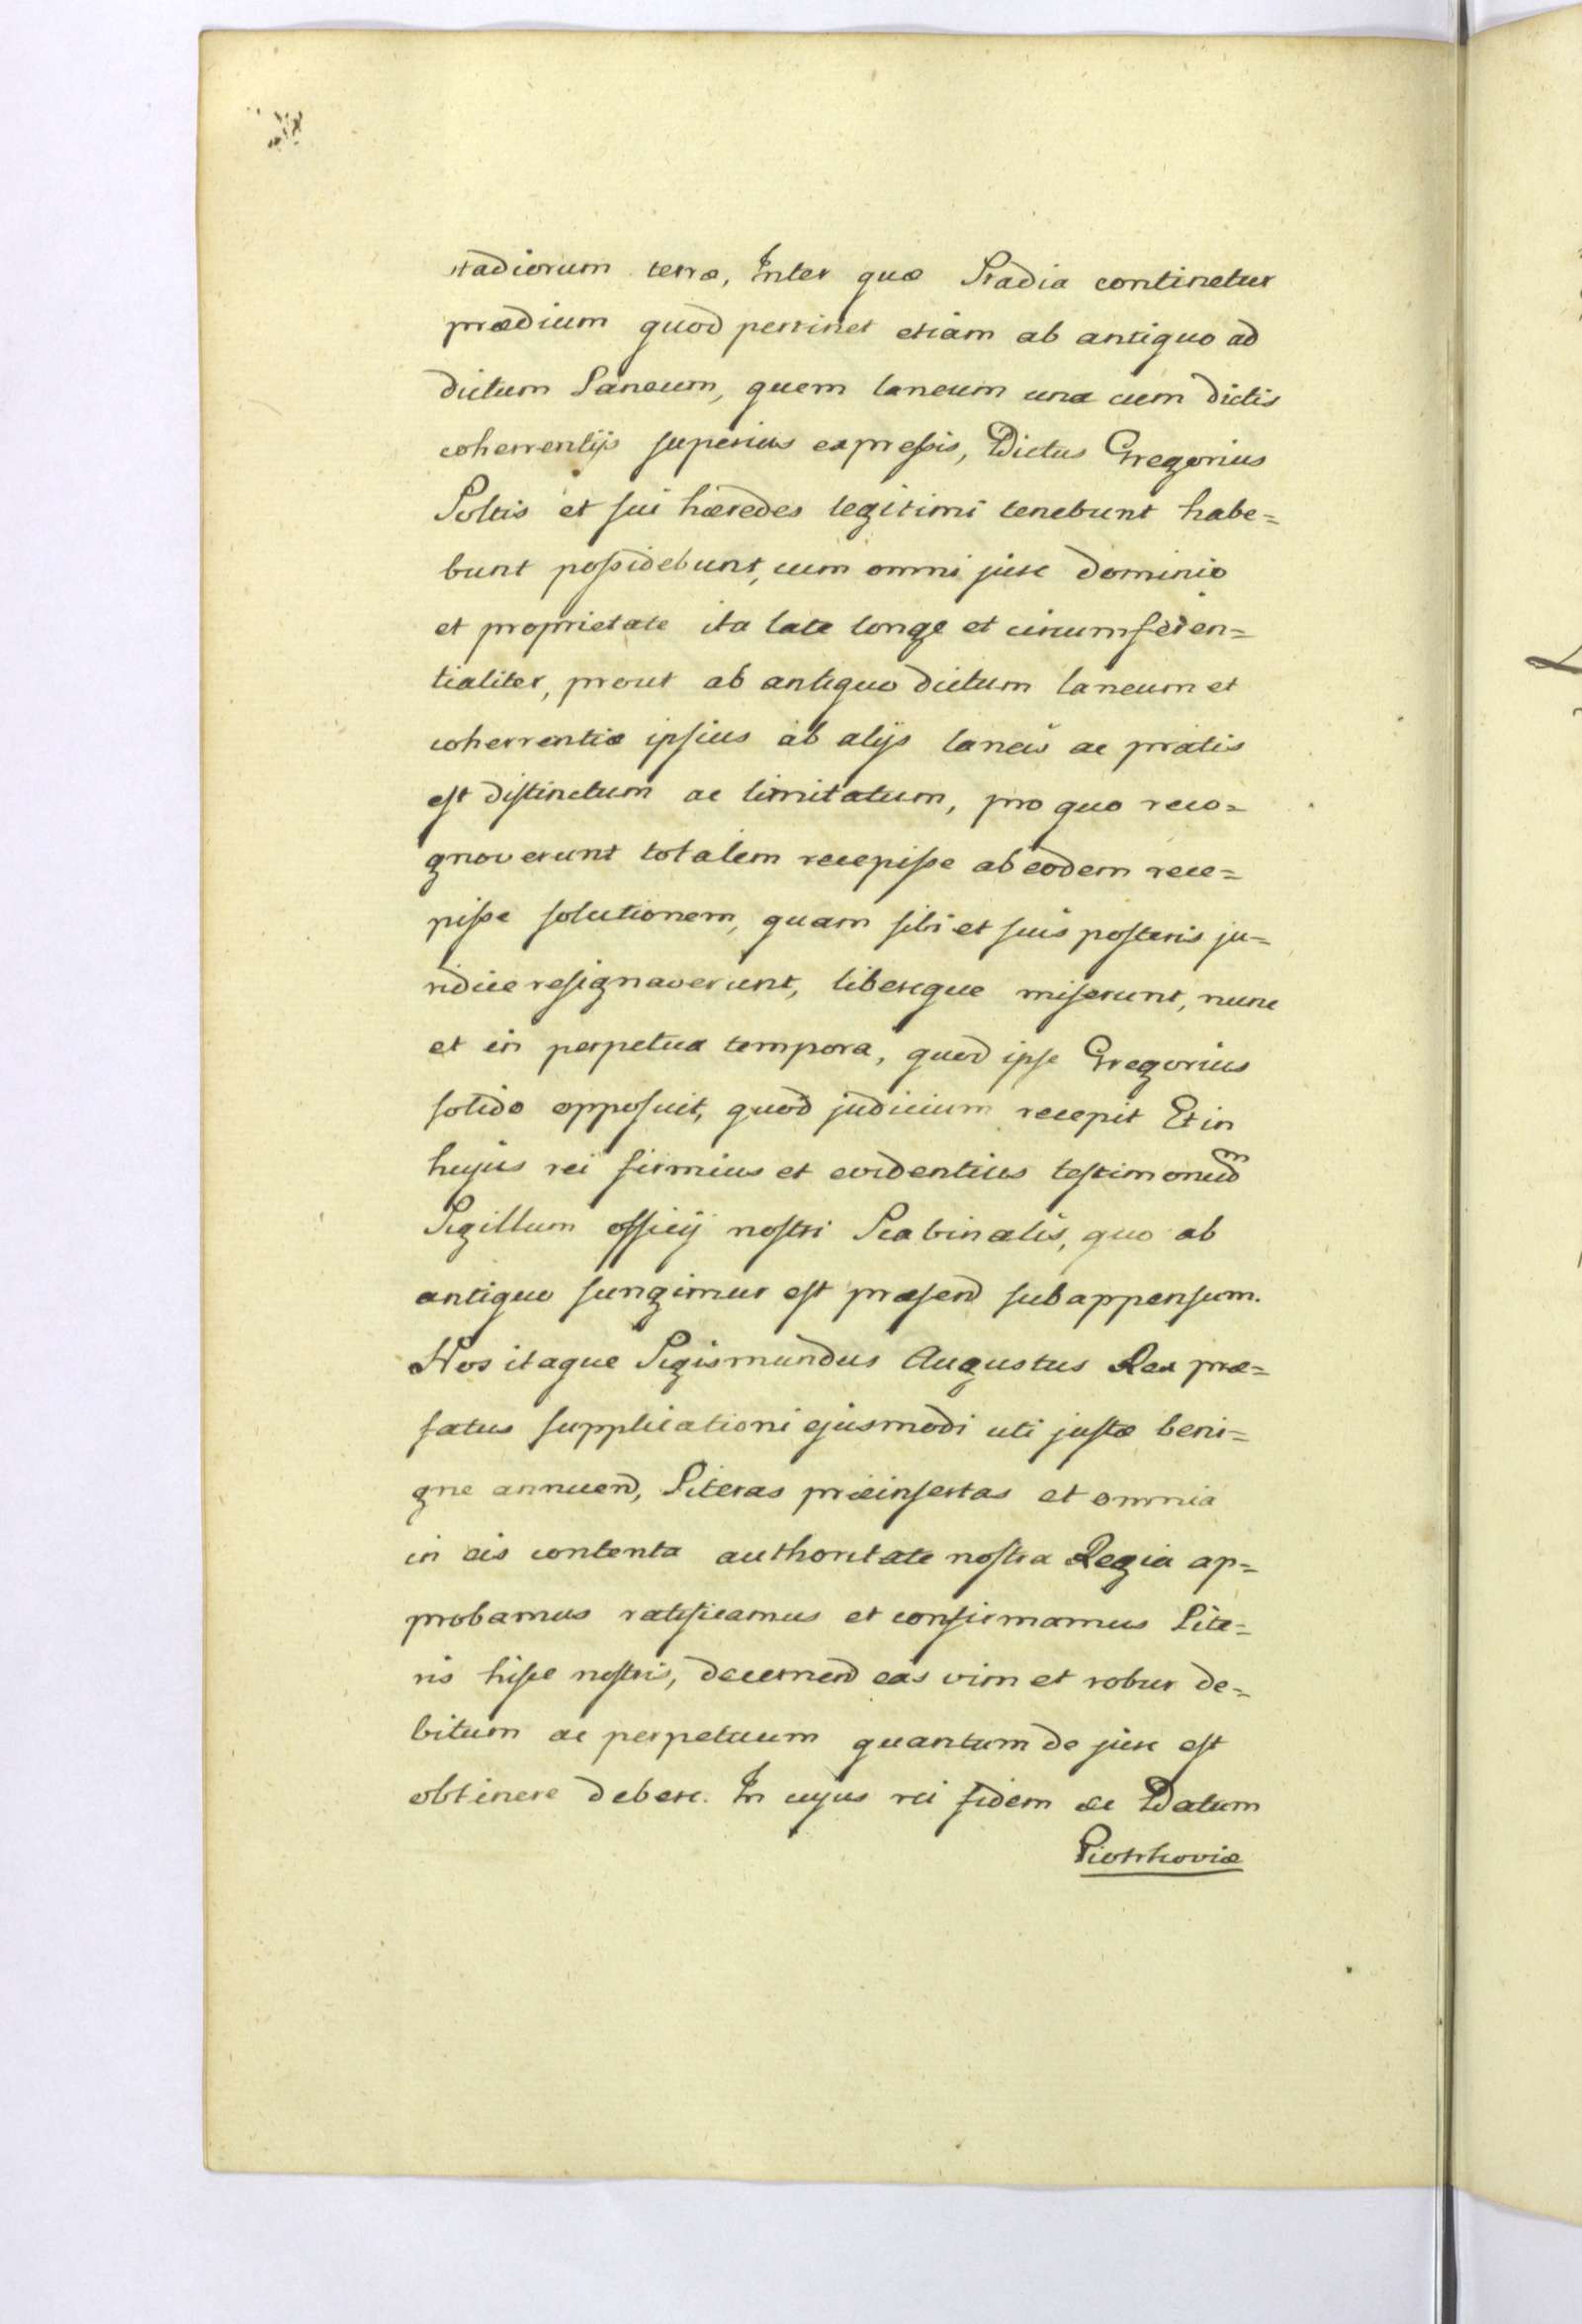 stadiorum terræ, Inter quæ Stadia continetur
prædium quod pertinet etiam ab antiquo ad
dictum Laneum, quem laneum una cum dictis
coherrentijs superius expressis, Dictus Gregorius
Soltis et sui hæredes legitimi tenebunt habe=
bunt possidebunt, cum omni jure dominio
et proprietate ita late longe et circumferen=
tialiter, prout ab antiquo dictum laneum et
coherrentiæ ipsius ab alijs laneis ac pratis
est distinctum ac limitatum, pro quo reco=
gnoverunt totalem recepisse ab eodem rece=
pisse solutionem, quam sibi et suis posteris ju=
ridice resignaverunt, libereque miserunt, nunc
et in perpetua tempora, quod ipse Gregorius
solido opposuit, quod judicium recepit Et in
hujus rei firmius et evidentius testimoniu͠m
Sigillum officij nostri Scabinalis, quo ab
antiquo fungimur est præsend subappensum.
Nos itaque Sigismundus Augustus Rex præ=
fatus supplicationi ejusmodi uti justæ beni=
gne annuend, Literas præinsertas et omnia
in eis contenta authoritate nostra Regia ap=
probamus ratificamus et confirmamus Lite=
ris hisce nostris, decernend eas vim et robur de=
bitum ac perpetuum quantum de jure est
obtinere debere. In cujus rei fidem ac Datum
Piotrkoviæ